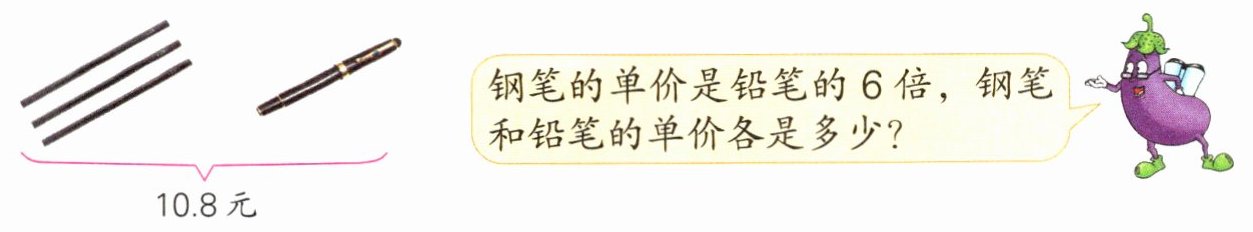 钢笔的单价是铅笔的 6 倍，钢笔
和铅笔的单价各是多少？
10.8 元